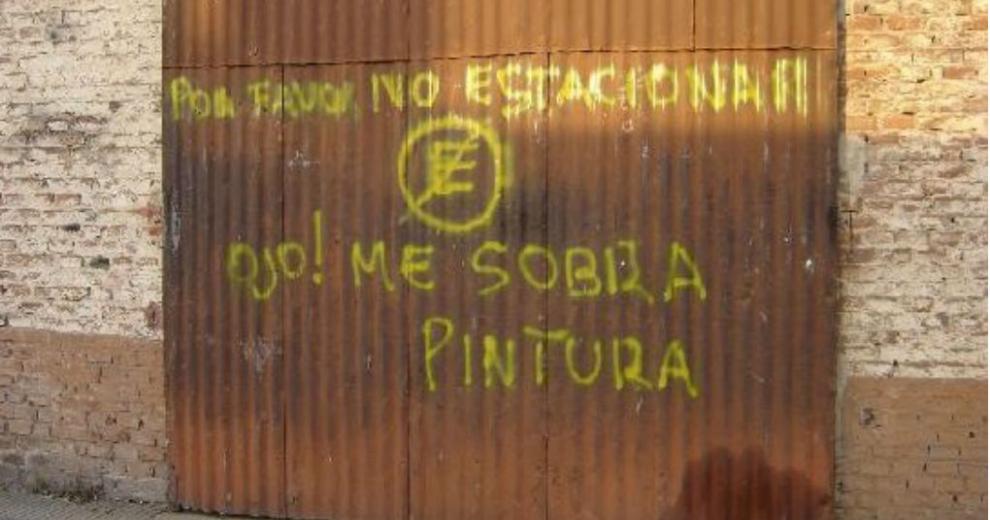 POR FAVOR, NO ESTACIONAR
E
OJO! ME SOBRA
PINTURA